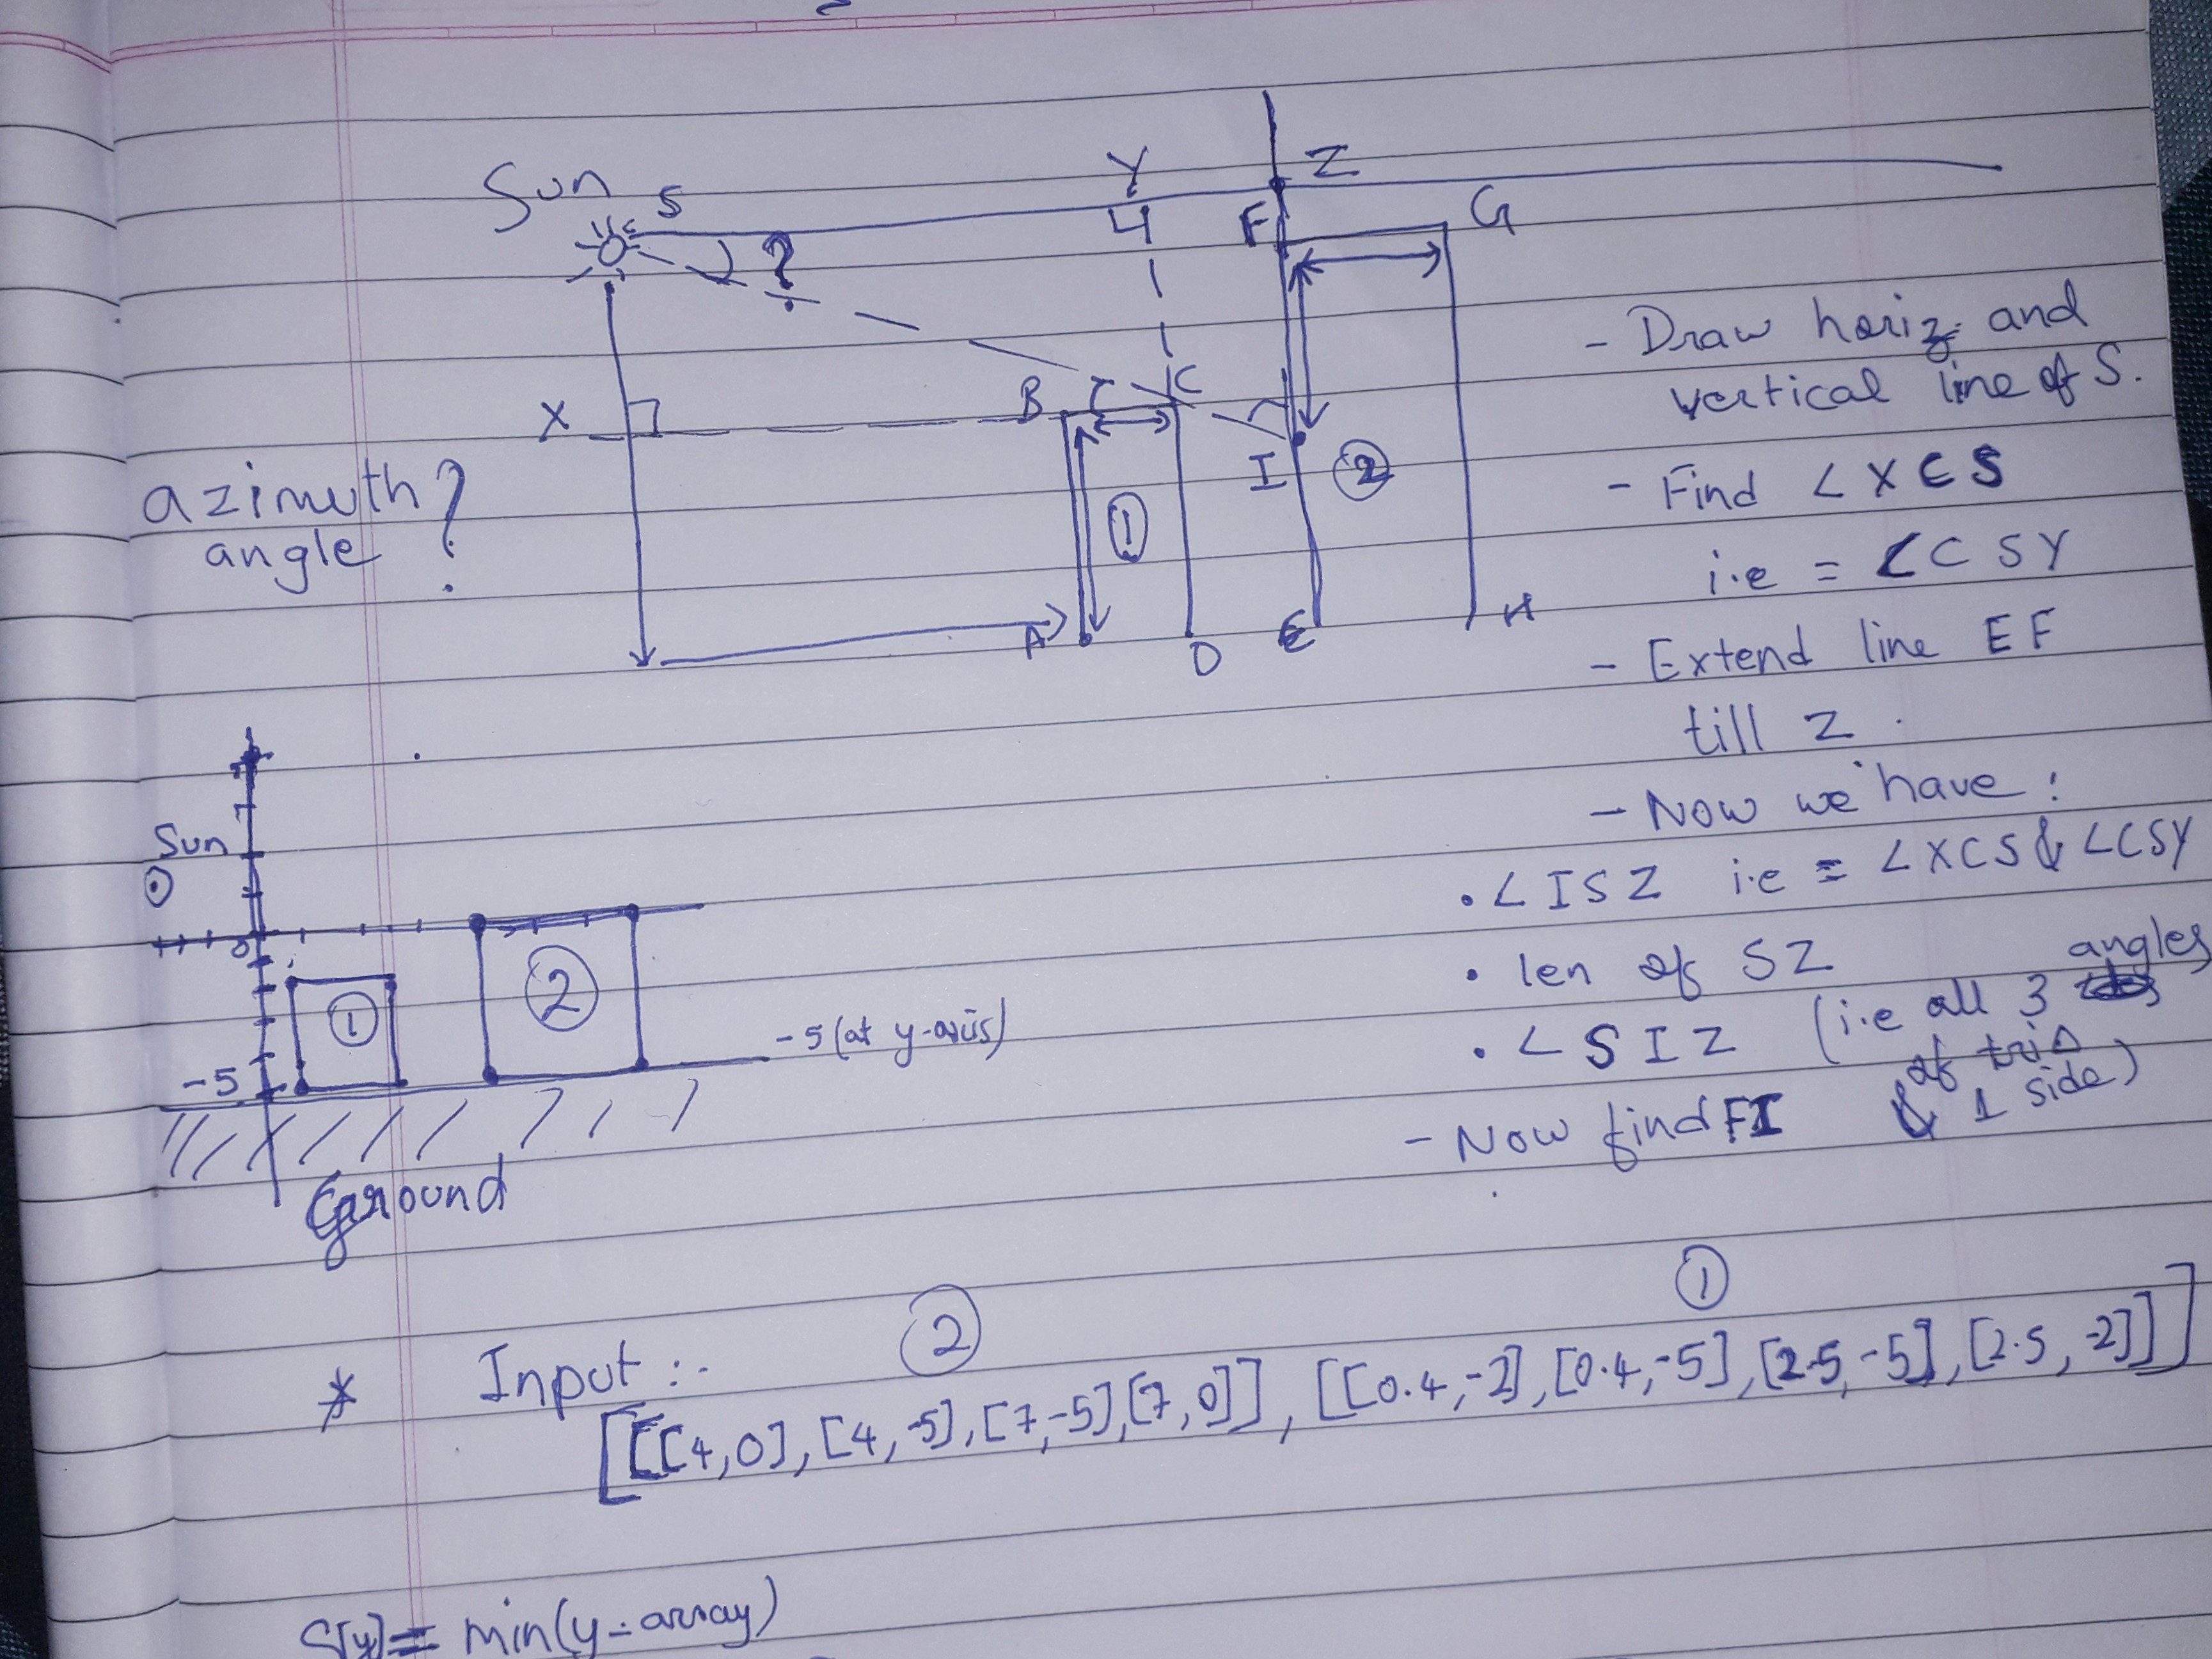 Sun
S
Y
Z
F
G
?
X
B
C
I
1
2
A
D
E
H
azimuth ?
angle
- Draw horiz. and
vertical line of S.
- Find ∠XCS
i.e = ∠CSY
- Extend line EF
till Z
- Now we have :
• ∠ISZ i.e = ∠XCS & ∠CSY
• len of SZ
• ∠SIZ (i.e all 3 angles
of tri Δ
& 1 side)
- Now find FI
Sun
0
1
2
-5
-5 (at y-axis)
Ground
2
1
* Input :-
[[[4,0],[4,-5],[7,-5],[7,0]], [[0.4,-2],[0.4,-5],[2.5,-5],[2.5,-2]]]
= min(y-array)